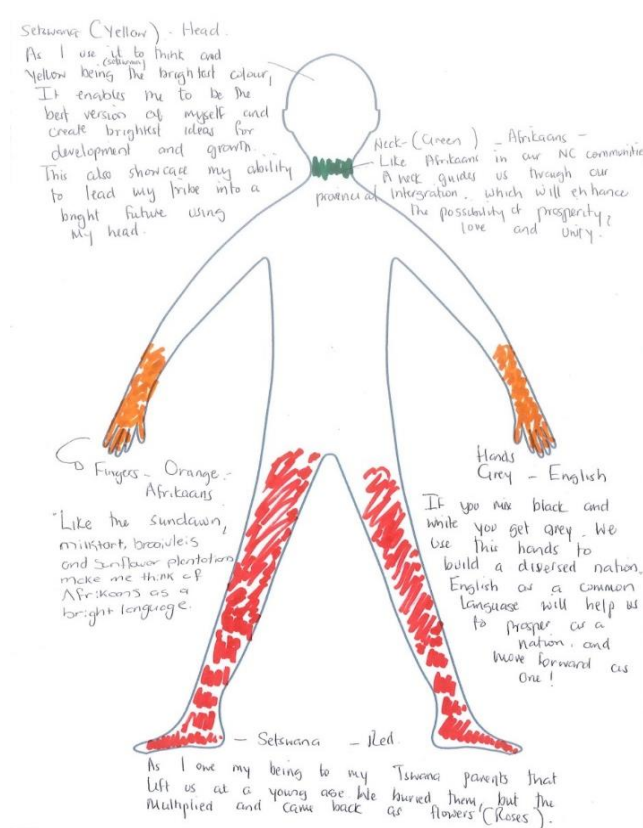 Setswana (Yellow) - Head.
As I use it to think and
(setswana)
Yellow being the brightest colour,
It enables me to be the
best version of myself and
create brightest ideas for
development and growth.
This also showcase my ability
to lead my tribe into a
bright future using
my head.
Neck - (Green) - Afrikaans -
Like Afrikaans in our NC communities
A neck guides us through our
provincial intergration. which will enhance
the possibility of prosperity,
love and unity.
Fingers - Orange -
Afrikaans
"Like the sundawn,
milktart, braaivleis
and sunflower plantation
make me think of
Afrikaans as a
bright language.
Hands
Grey - English
If you mix black and
white you get grey. We
use this hands to
build a diversed nation.
English as a common
language will help us
to prosper as a
nation. and
move forward as
One!
- Setswana - Red.
As I owe my being to my Tswana parents that
left us at a young age We buried them, but the
Multiplied and came back as flowers (Roses).